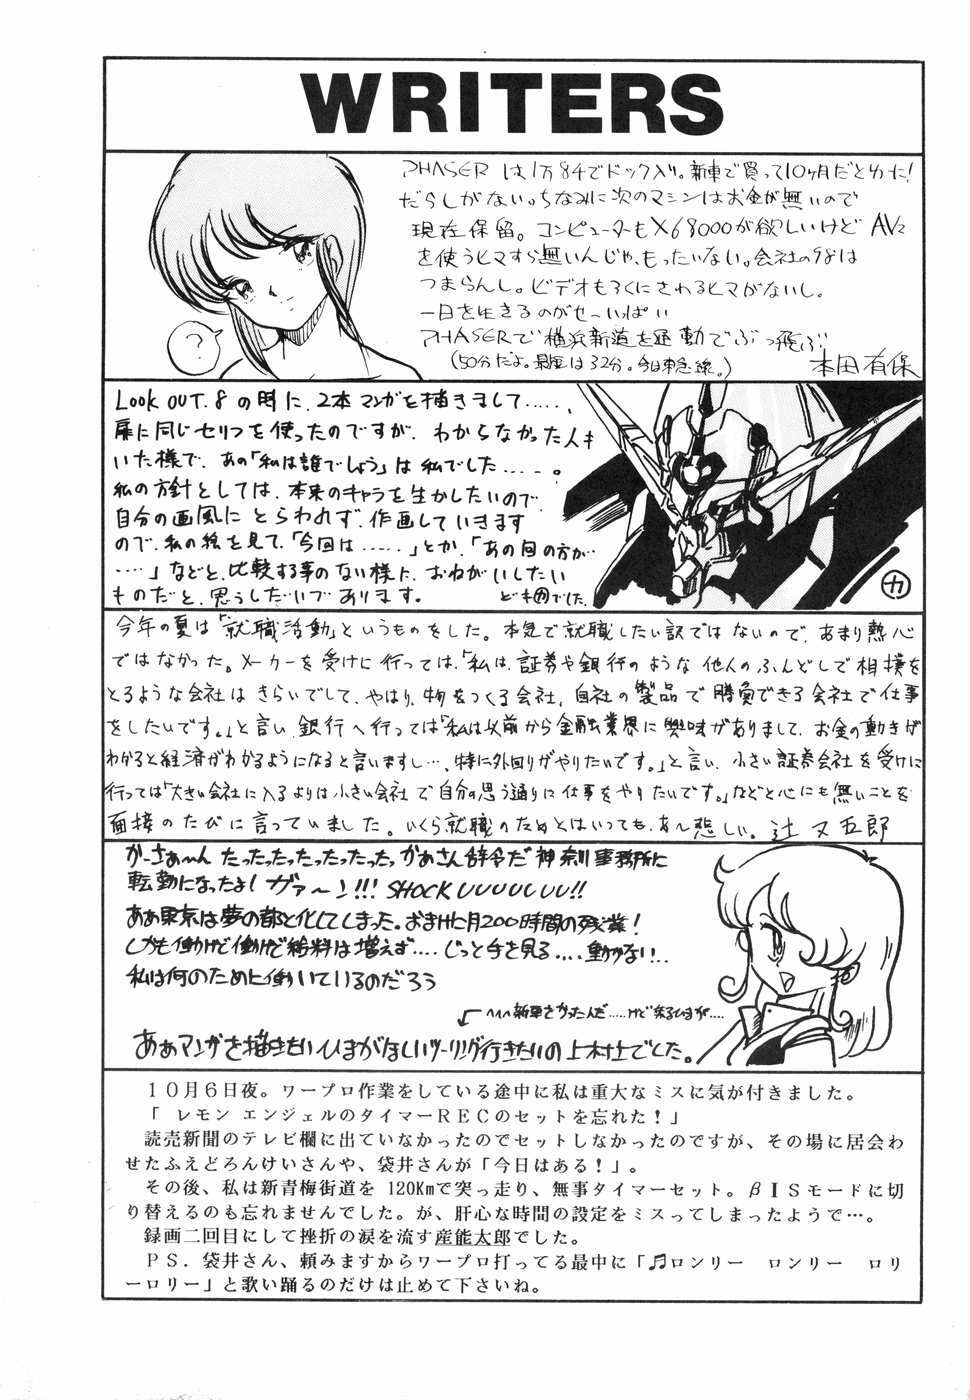 WRITERS
PHASERは1万84でドック入り。新車で買って10ヶ月だとゆーに!
だらしがない。ちなみに次のマシンはお金が無いので
現在保留。コンピューターもX68000が欲しいけど AV2
を使うヒマすら無いんじゃ、もったいない。会社の98は
つまらんし。ビデオもろくにさわるヒマがないし。
一日を生きるのがせ〜いっぱい
PHASERで横浜新道を通勤でぶっ飛ぶ
(50分だよ。最短は32分。今日東急線。)
本田有保
?
Look OUT.8の時に、2本マンガを描きまして.....、
扉に同じセリフを使ったのですが、わからなかった人も
いた様で、あの「私は誰でしょう」は私でした.....。
私の方針としては、本来のキャラを生かしたいので、
自分の画風にとらわれず、作画していきます
ので、私の絵を見て、「今回は.....」とか、「あの回の方が
....」などと、比較する事のない様に、おねがいしたい
ものだと、思うしだいであります。
でした。
カ
今年の夏は「就職活動」というものをした。本気で就職したい訳ではないので、あまり熱心
ではなかった。メーカーを受けに行っては、「私は、証券や銀行のような他人のふんどしで相撲を
とるような会社はきらいでして、やはり、物をつくる会社、自社の製品で勝負できる会社で仕事
をしたいです。」と言い、銀行へ行っては「私は以前から金融業界に興味がありまして、お金の動きが
わかると経済がわかるようになると言いますし…、特に外回りがやりたいです。」と言い、小さい証券会社を受けに
行っては「大きい会社に入るよりは小さい会社で自分の思う通りに仕事をやりたいです。」などと心にも無いことを
面接のたびに言っていました。いくら就職のためとはいっても、あ〜悲しい。辻又五郎
かーさぁ〜ん たったったったったったった、かあさん辞令だ 神奈川事務所に
転勤になったよ! ガァ〜ン!!! SHOCKUUUUUUU!!
ああ東京は夢の都と化してしまった。おまけに月200時間の残業!
しかも働けど働けど給料は増えず....じっと手を見る....動かない..
私は何のために働いているのだろう
へへへ新車さかったんだ.....けど乗るひまが....
ああマンガを描きたいひまがほしいツーリング行きたいの上村上でした。
10月6日夜。ワープロ作業をしている途中に私は重大なミスに気が付きました。
「 レモン エンジェルのタイマーRECのセットを忘れた!」
読売新聞のテレビ欄に出ていなかったのでセットしなかったのですが、その場に居会わ
せたふえどろんけいさんや、袋井さんが「今日はある!」。
その後、私は新青梅街道を 120Kmで突っ走り、無事タイマーセット。βISモードに切
り替えるのも忘れませんでした。が、肝心な時間の設定をミスってしまったようで…。
録画二回目にして挫折の涙を流す産能太郎でした。
PS. 袋井さん、頼みますからワープロ打ってる最中に「♫ロンリー ロンリー ロリ
ーロリー」と歌い踊るのだけは止めて下さいね。